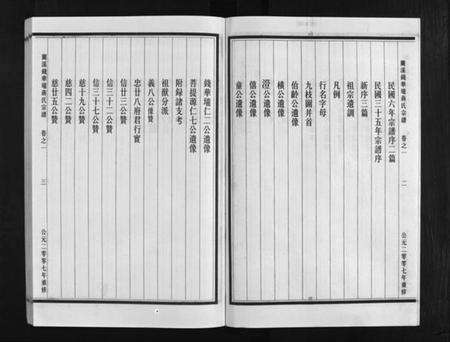 蘭溪錢華塘蔣氏宗譜 卷之一 二
民國六年宗譜序二篇
民國三十五年宗譜序
新序三篇
祖宗遺訓
凡例
行名字母
九枝圖并首
伯齡公遺像
橫公遺像
澄公遺像
僖公遺像
童公遺像
公元二零零七年重修
錢華塘仁二公遺像
菩提源仁七公遺像
附錄諸支考
祖猷分派
義八公像贊
忠廿八府君行實
信廿三公贊
信三十二公贊
信三十七公贊
慈十九公贊
慈四二公贊
慈廿五公贊
蘭溪錢華塘蔣氏宗譜 卷之一 三
公元二零零七年重修